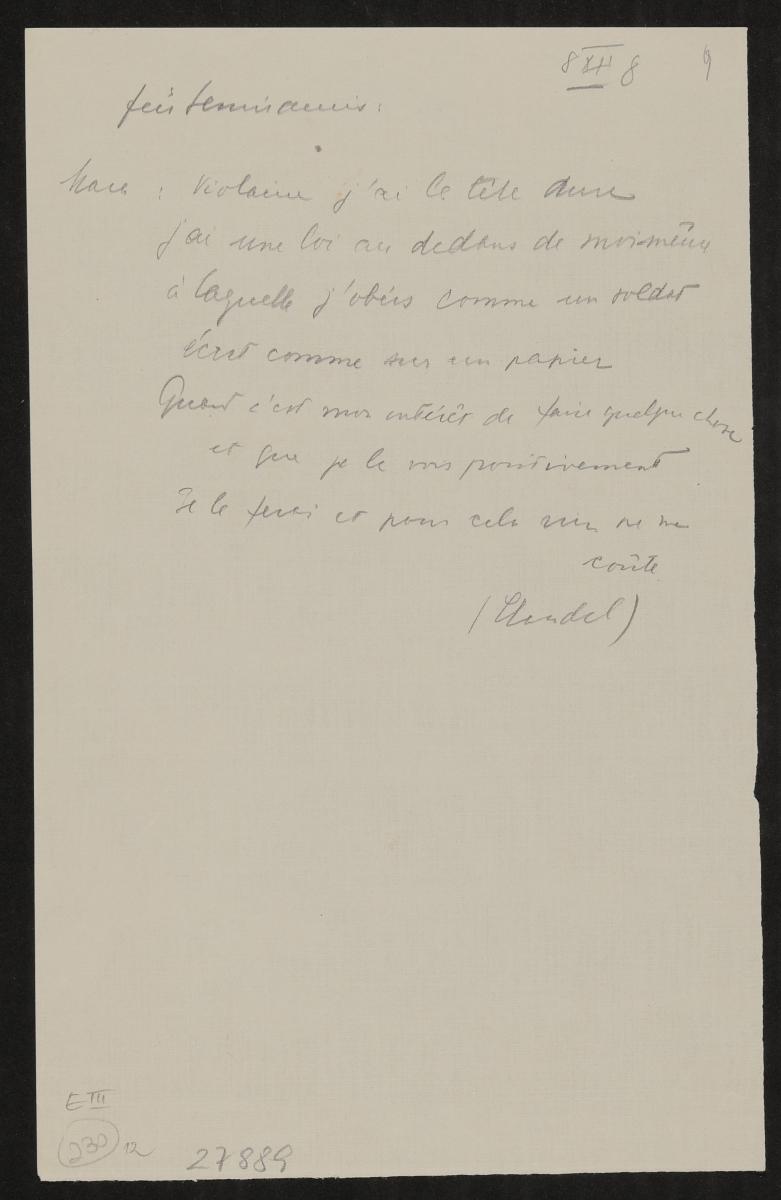 8 XII 8
für Semiramis :
Mara : Violaine j'ai la tête dure
j'ai une loi au dedans de moi-même
à laquelle j'obéis comme un soldat
écrit comme sur un papier
Quand c'est mon intérêt de faire quelque chose
et que je le vois positivement
Je le ferai et pour cela rien ne me
coûte
(Claudel)
E III
230 12
27889